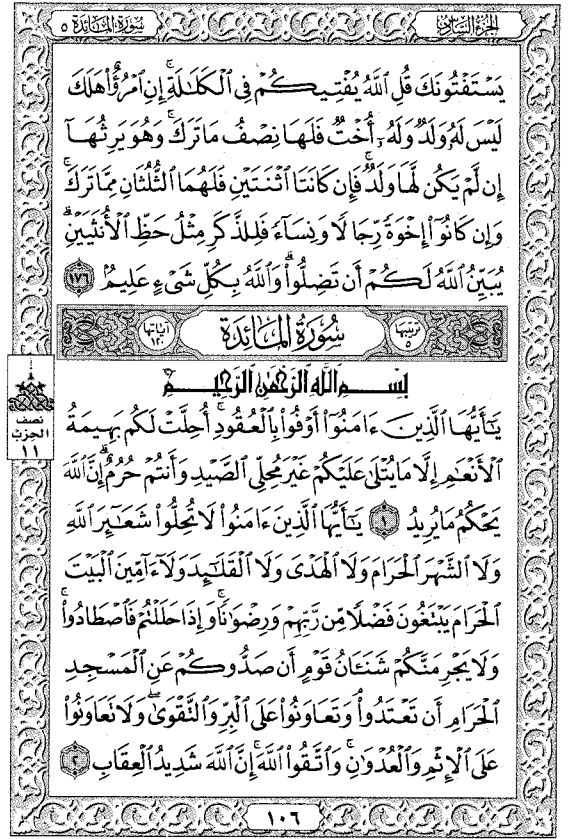 سورة المائدة ٥
الجزء السادس
يَسْتَفْتُونَكَ قُلِ ٱللَّهُ يُفْتِيكُمْ فِى ٱلْكَلَٰلَةِ ۚ إِنِ ٱمْرُؤٌا۟ هَلَكَ
لَيْسَ لَهُۥ وَلَدٌ وَلَهُۥٓ أُخْتٌ فَلَهَا نِصْفُ مَا تَرَكَ ۚ وَهُوَ يَرِثُهَآ
إِن لَّمْ يَكُن لَّهَا وَلَدٌ ۚ فَإِن كَانَتَا ٱثْنَتَيْنِ فَلَهُمَا ٱلثُّلُثَانِ مِمَّا تَرَكَ ۚ
وَإِن كَانُوٓا۟ إِخْوَةً رِّجَالًا وَنِسَآءً فَلِلذَّكَرِ مِثْلُ حَظِّ ٱلْأُنثَيَيْنِ ۗ
يُبَيِّنُ ٱللَّهُ لَكُمْ أَن تَضِلُّوا۟ ۗ وَٱللَّهُ بِكُلِّ شَىْءٍ عَلِيمٌۢ ١٧٦
ترتيبها ٥ سورة المائدة آياتها ١٢٠
بسم الله الرحمن الرحيم
يَٰٓأَيُّهَا ٱلَّذِينَ ءَامَنُوٓا۟ أَوْفُوا۟ بِٱلْعُقُودِ ۚ أُحِلَّتْ لَكُم بَهِيمَةُ
ٱلْأَنْعَٰمِ إِلَّا مَا يُتْلَىٰ عَلَيْكُمْ غَيْرَ مُحِلِّى ٱلصَّيْدِ وَأَنتُمْ حُرُمٌ ۗ إِنَّ ٱللَّهَ
يَحْكُمُ مَا يُرِيدُ ١ يَٰٓأَيُّهَا ٱلَّذِينَ ءَامَنُوا۟ لَا تُحِلُّوا۟ شَعَٰٓئِرَ ٱللَّهِ
وَلَا ٱلشَّهْرَ ٱلْحَرَامَ وَلَا ٱلْهَدْىَ وَلَا ٱلْقَلَٰٓئِدَ وَلَآ ءَآمِّينَ ٱلْبَيْتَ
ٱلْحَرَامَ يَبْتَغُونَ فَضْلًا مِّن رَّبِّهِمْ وَرِضْوَٰنًا ۚ وَإِذَا حَلَلْتُمْ فَٱصْطَادُوا۟ ۚ
وَلَا يَجْرِمَنَّكُمْ شَنَـَٔانُ قَوْمٍ أَن صَدُّوكُمْ عَنِ ٱلْمَسْجِدِ
ٱلْحَرَامِ أَن تَعْتَدُوا۟ ۘ وَتَعَاوَنُوا۟ عَلَى ٱلْبِرِّ وَٱلتَّقْوَىٰ ۖ وَلَا تَعَاوَنُوا۟
عَلَى ٱلْإِثْمِ وَٱلْعُدْوَٰنِ ۚ وَٱتَّقُوا۟ ٱللَّهَ ۖ إِنَّ ٱللَّهَ شَدِيدُ ٱلْعِقَابِ ٢
نصف
الحزب
١١
١٠٦